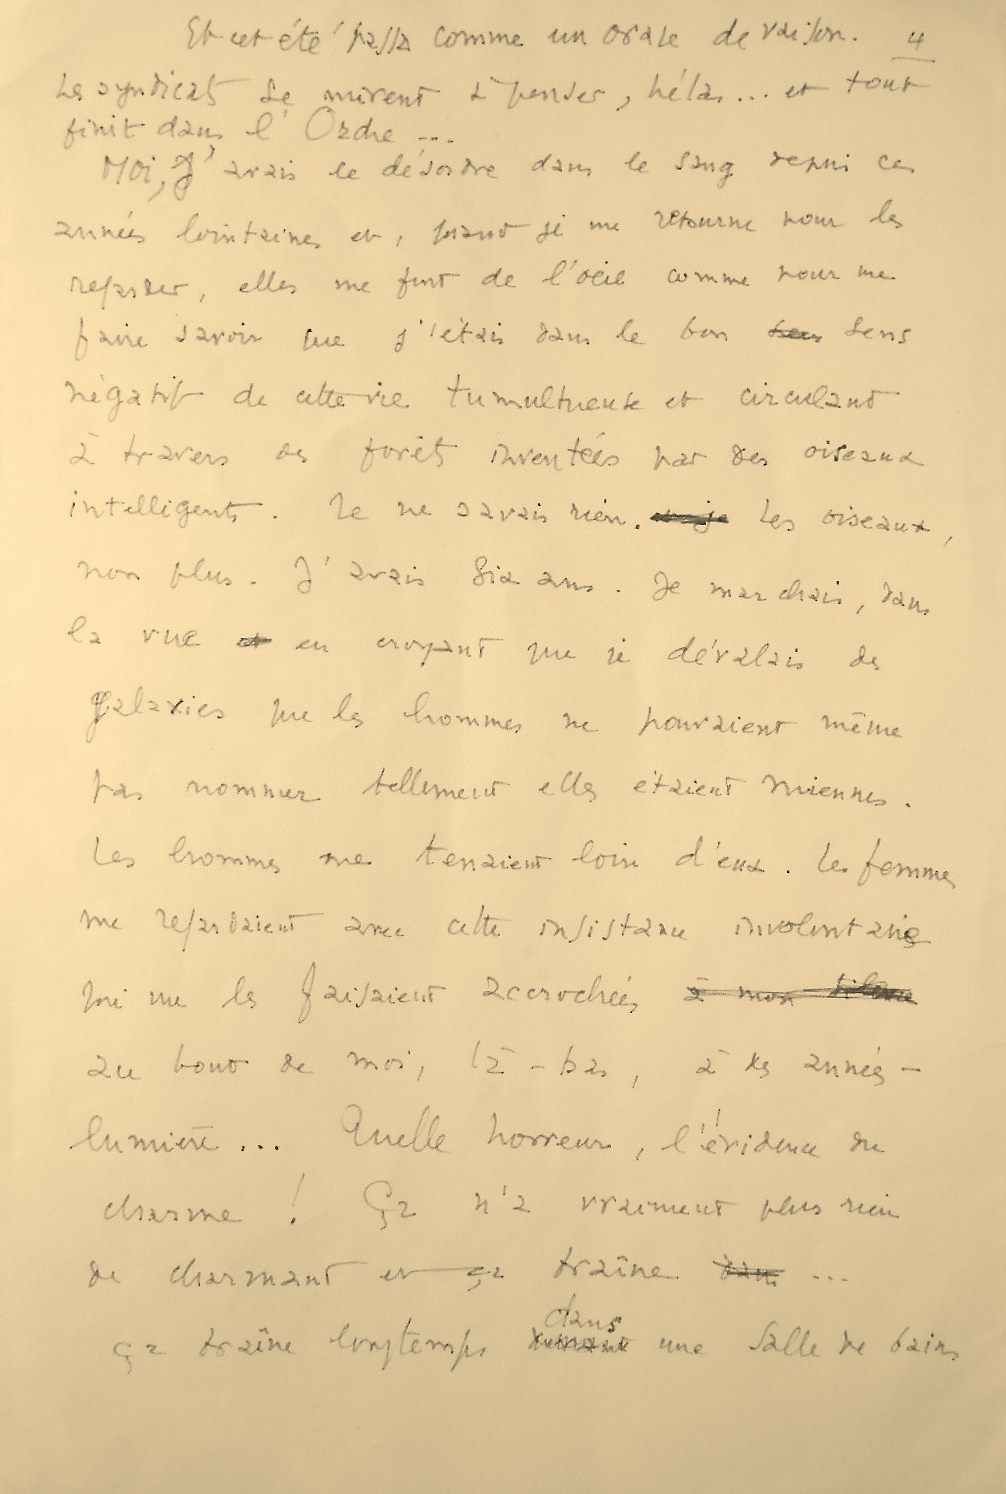 Et cet été passa comme un orage de raison. 4
Les syndicats se mirent à penser, hélas... et tout
finit dans l'Ordre...
Moi, J'avais le désordre dans le sang depuis ces
années lointaines et, quand je me retourne pour les
regarder, elles me font de l'œil comme pour me
faire savoir que j'étais dans le bon sens
négatif de cette vie tumultueuse et circulant
à travers des forêts inventées par des oiseaux
intelligents. Je ne savais rien. Les oiseaux,
non plus. J'avais six ans. Je marchais, dans
la rue en croyant que je dévalais des
galaxies que les hommes ne pouvaient même
pas nommer tellement elles étaient miennes.
Les hommes me tenaient loin d'eux. Les femmes
me regardaient avec cette insistance involontaire
qui me les faisaient accrochées
au bout de moi, là-bas, à des années-
lumière... Quelle horreur, l'évidence du
charme ! Ça n'a vraiment plus rien
de charmant et ça traîne ...
ça traîne longtemps dans une salle de bains